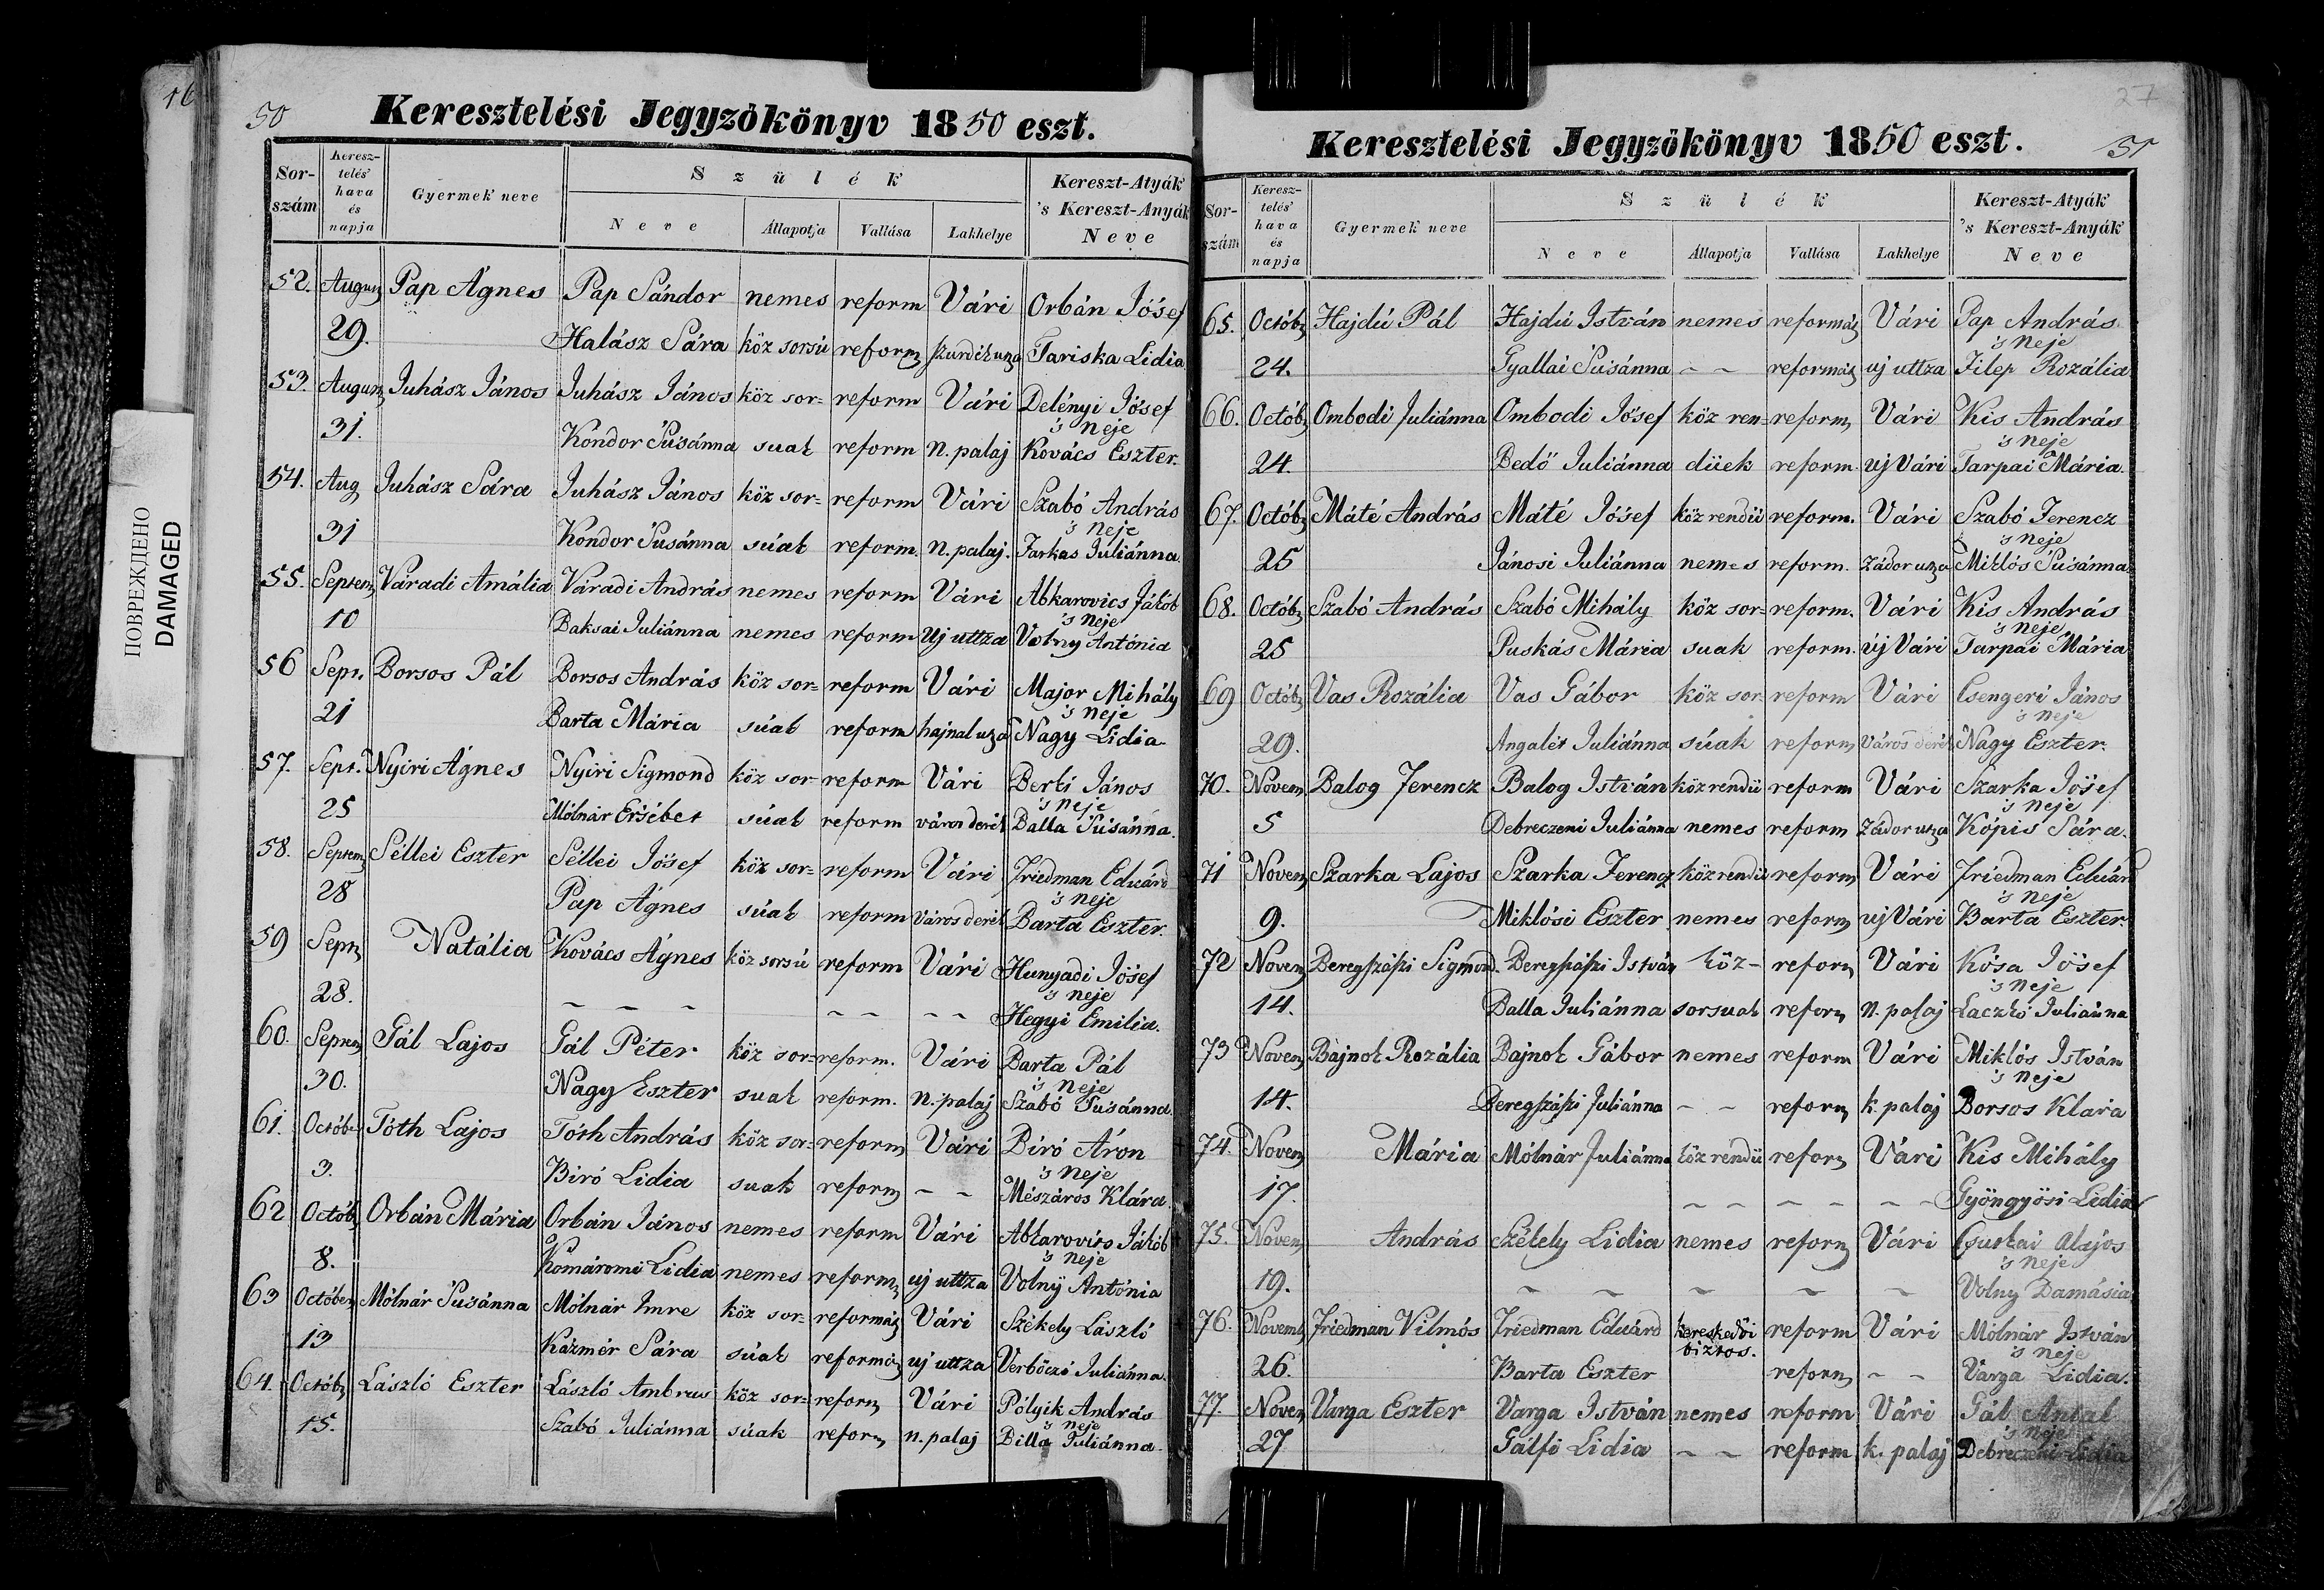 16
50
Keresztelési Jegyzőkönyv 1850 eszt.
Sor-szám Keresz-telés' hava és napja Gyermek' neve Szülék Kereszt-Atyák 's Kereszt-Anyák Neve
Neve Állapotja Vallása Lakhelye
52. Augusz Pap Ágnes Pap Sándor nemes reform Vári Orbán Jósef
29. Halász Sára köz sorsú reform Tariska Lidia
53. Augusz Juhász János Juhász János köz sor= reform Vári Delényi Jósef
's neje
31. Kondor Susánna suak reform n. palaj Kovács Eszter.
54. Aug Juhász Sára Juhász János köz sor= reform Vári Szabó András
's neje
31 Kondor Susánna súak reform n. palaj. Farkas Juliánna
55. Septem Váradi Amália Váradi András nemes reform Vári Abkarovics Jákob
's neje
10 Baksai Juliánna nemes reform Uj uttza Volny Antónia
56 Sept. Borsos Pál Borsos András köz sor= reform Vári Major Mihály
's neje
21 Barta Mária súak reform hajnal uza Nagy Lidia
57. Sept. Nyiri Ágnes Nyiri Sigmond köz sor- reform Vári Berki János
's neje
25 Mólnár Ersébet súak reform város derék Balla Susánna.
58. Septem Séllei Eszter Séllei Jósef köz sor= reform Vári Friedman Eduárd
's neje
28 Pap Ágnes súak reform Város derék Barta Eszter.
59 Sept Natália Kovács Ágnes köz sorsú reform Vári Hunyadi Jósef
's neje
28. – – – – – – – Hegyi Emilia.
60. Septem Gál Lajos Gál Péter köz sor= reform. Vári Barta Pál
's neje
30. Nagy Eszter suak reform. n. palaj Szabó Susánna.
61. Octób Tóth Lajos Tóth András köz sor- reform Vári Biró Áron
's neje
3. Biró Lidia suak reform – – Mészáros Klára
62 Octób Orbán Mária Orbán János nemes reform Vári Abkarovits Jákob
's neje
8. Komáromi Lidia nemes reform uj uttza Volny Antónia
63 Octóber Mólnár Susánna Mólnár Imre köz sor= reformát Vári Székely László
13 Kázmér Sára súak reformát uj uttza Verbőczi Juliánna.
64. Octób László Eszter László Ambrus köz sor= reform Vári Pólyik András
's neje
15. Szabó Juliánna súak reform n. palaj Billa Juliánna.
27
51
Keresztelési Jegyzőkönyv 1850 eszt.
Sor-szám Keresz-telés' hava és napja Gyermek' neve Szülék Kereszt-Atyák 's Kereszt-Anyák Neve
Neve Állapotja Vallása Lakhelye
65. Octób Hajdú Pál Hajdú István nemes reformát Vári Pap András
's neje
24. Gyallai Susánna – – reformát uj uttza Filep Rozália
66. Octób Ombodi Juliánna Ombodi Jósef köz ren= reform Vári Kis András
's neje
24. Bedő Juliánna düek reform. uj Vári Tarpai Mária.
67. Octób Máté András Máté Jósef köz rendü reform. Vári Szabó Ferencz
's neje
25 Jánosi Juliánna nemes reform. Zádor utza Miklós Susánna
68. Octób Szabó András Szabó Mihály köz sor= reform. Vári Kis András
's neje
25 Puskás Mária suak reform. új Vári Tarpai Mária
69 Octób Vas Rozália Vas Gábor köz sor- reform Vári Csengeri János
's neje
29. Angalét Juliánna súak reform Város derék Nagy Eszter.
70. Novem Balog Ferencz Balog István köz rendü reform Vári Szarka Jósef
's neje
5 Debreczeni Juliánna nemes reform Zádor utza Kópis Sára.
71 Novem Szarka Lajos Szarka Ferencz köz rendü reform Vári Friedman Eduárd
's neje
9. Miklósi Eszter nemes reform uj Vári Barta Eszter.
72 Novem Beregszászi Sigmond Beregszászi István köz- reform Vári Kósa Jósef
's neje
14. Balla Juliánna sorsuak reform n. palaj Laczkó Juliánna
73 Novem Bajnok Rozália Bajnok Gábor nemes reform Vári Miklós István
's neje
14. Beregszászi Juliánna – – reform k. palaj Borsos Klara
74. Novem Mária Mólnár Juliánna köz rendü reform Vári Kis Mihály
17. – – – – – – Gyöngyösi Lidia
75. Novem András Székely Lidia nemes reform Vári Csuskai Alajos
's neje
19. – – – – – Volny Damásia
76. Novemb Friedman Vilmós Friedman Eduárd kereskedői biztos. reform Vári Mólnár István
's neje
26. Barta Eszter reform – – Varga Lidia.
77. Novem Varga Eszter Varga István nemes reform Vári Gál Antal
's neje
27 Gálfi Lidia – – reform k. palaj Debreczeni Lidia
ПОВРЕЖДЕНО
DAMAGED